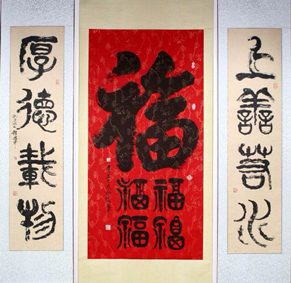 上善若水
福
福福
福福
厚德載物